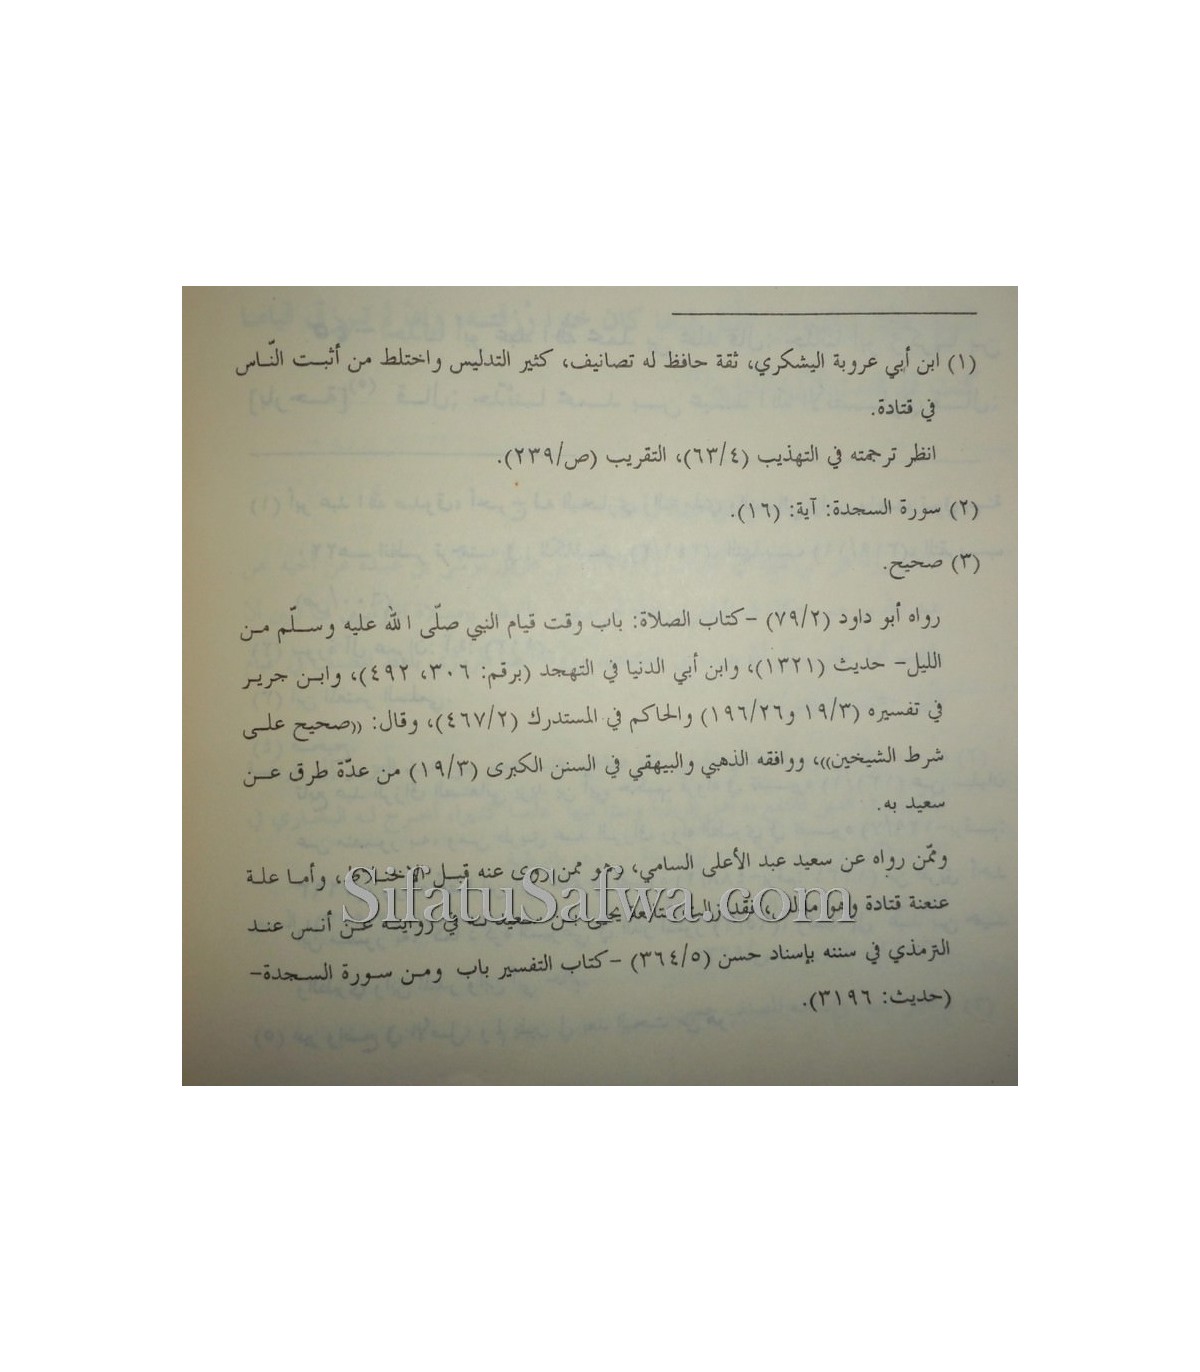 (١) ابن أبي عروبة اليشكري، ثقة حافظ له تصانيف، كثير التدليس واختلط من أثبت النّاس
في قتادة.
انظر ترجمته في التهذيب (٦٣/٤)، التقريب (ص/٢٣٩).
(٢) سورة السجدة: آية: (١٦).
(٣) صحيح.
رواه أبو داود (٧٩/٢) -كتاب الصلاة: باب وقت قيام النبي صلّى الله عليه وسلّم من
الليل- حديث (١٣٢١)، وابن أبي الدنيا في التهجد (برقم: ٣٠٦، ٤٩٢)، وابن جرير
في تفسيره (١٩/٣ و١٩٦/٢٦) والحاكم في المستدرك (٤٦٧/٢)، وقال: ((صحيح على
شرط الشيخين))، ووافقه الذهبي والبيهقي في السنن الكبرى (١٩/٣) من عدّة طرق عن
سعيد به.
وممّن رواه عن سعيد عبد الأعلى السامي، وهو ممن روى عنه قبل الاختلاط، وأما علة
SifatuSafwa.com
عنعنة قتادة وهو مدلس، فقد زالت بمتابعة يحيى بن سعيد له في روايته عن أنس عند
الترمذي في سننه بإسناد حسن (٣٦٤/٥) -كتاب التفسير باب ومن سورة السجدة-
(حديث: ٣١٩٦).